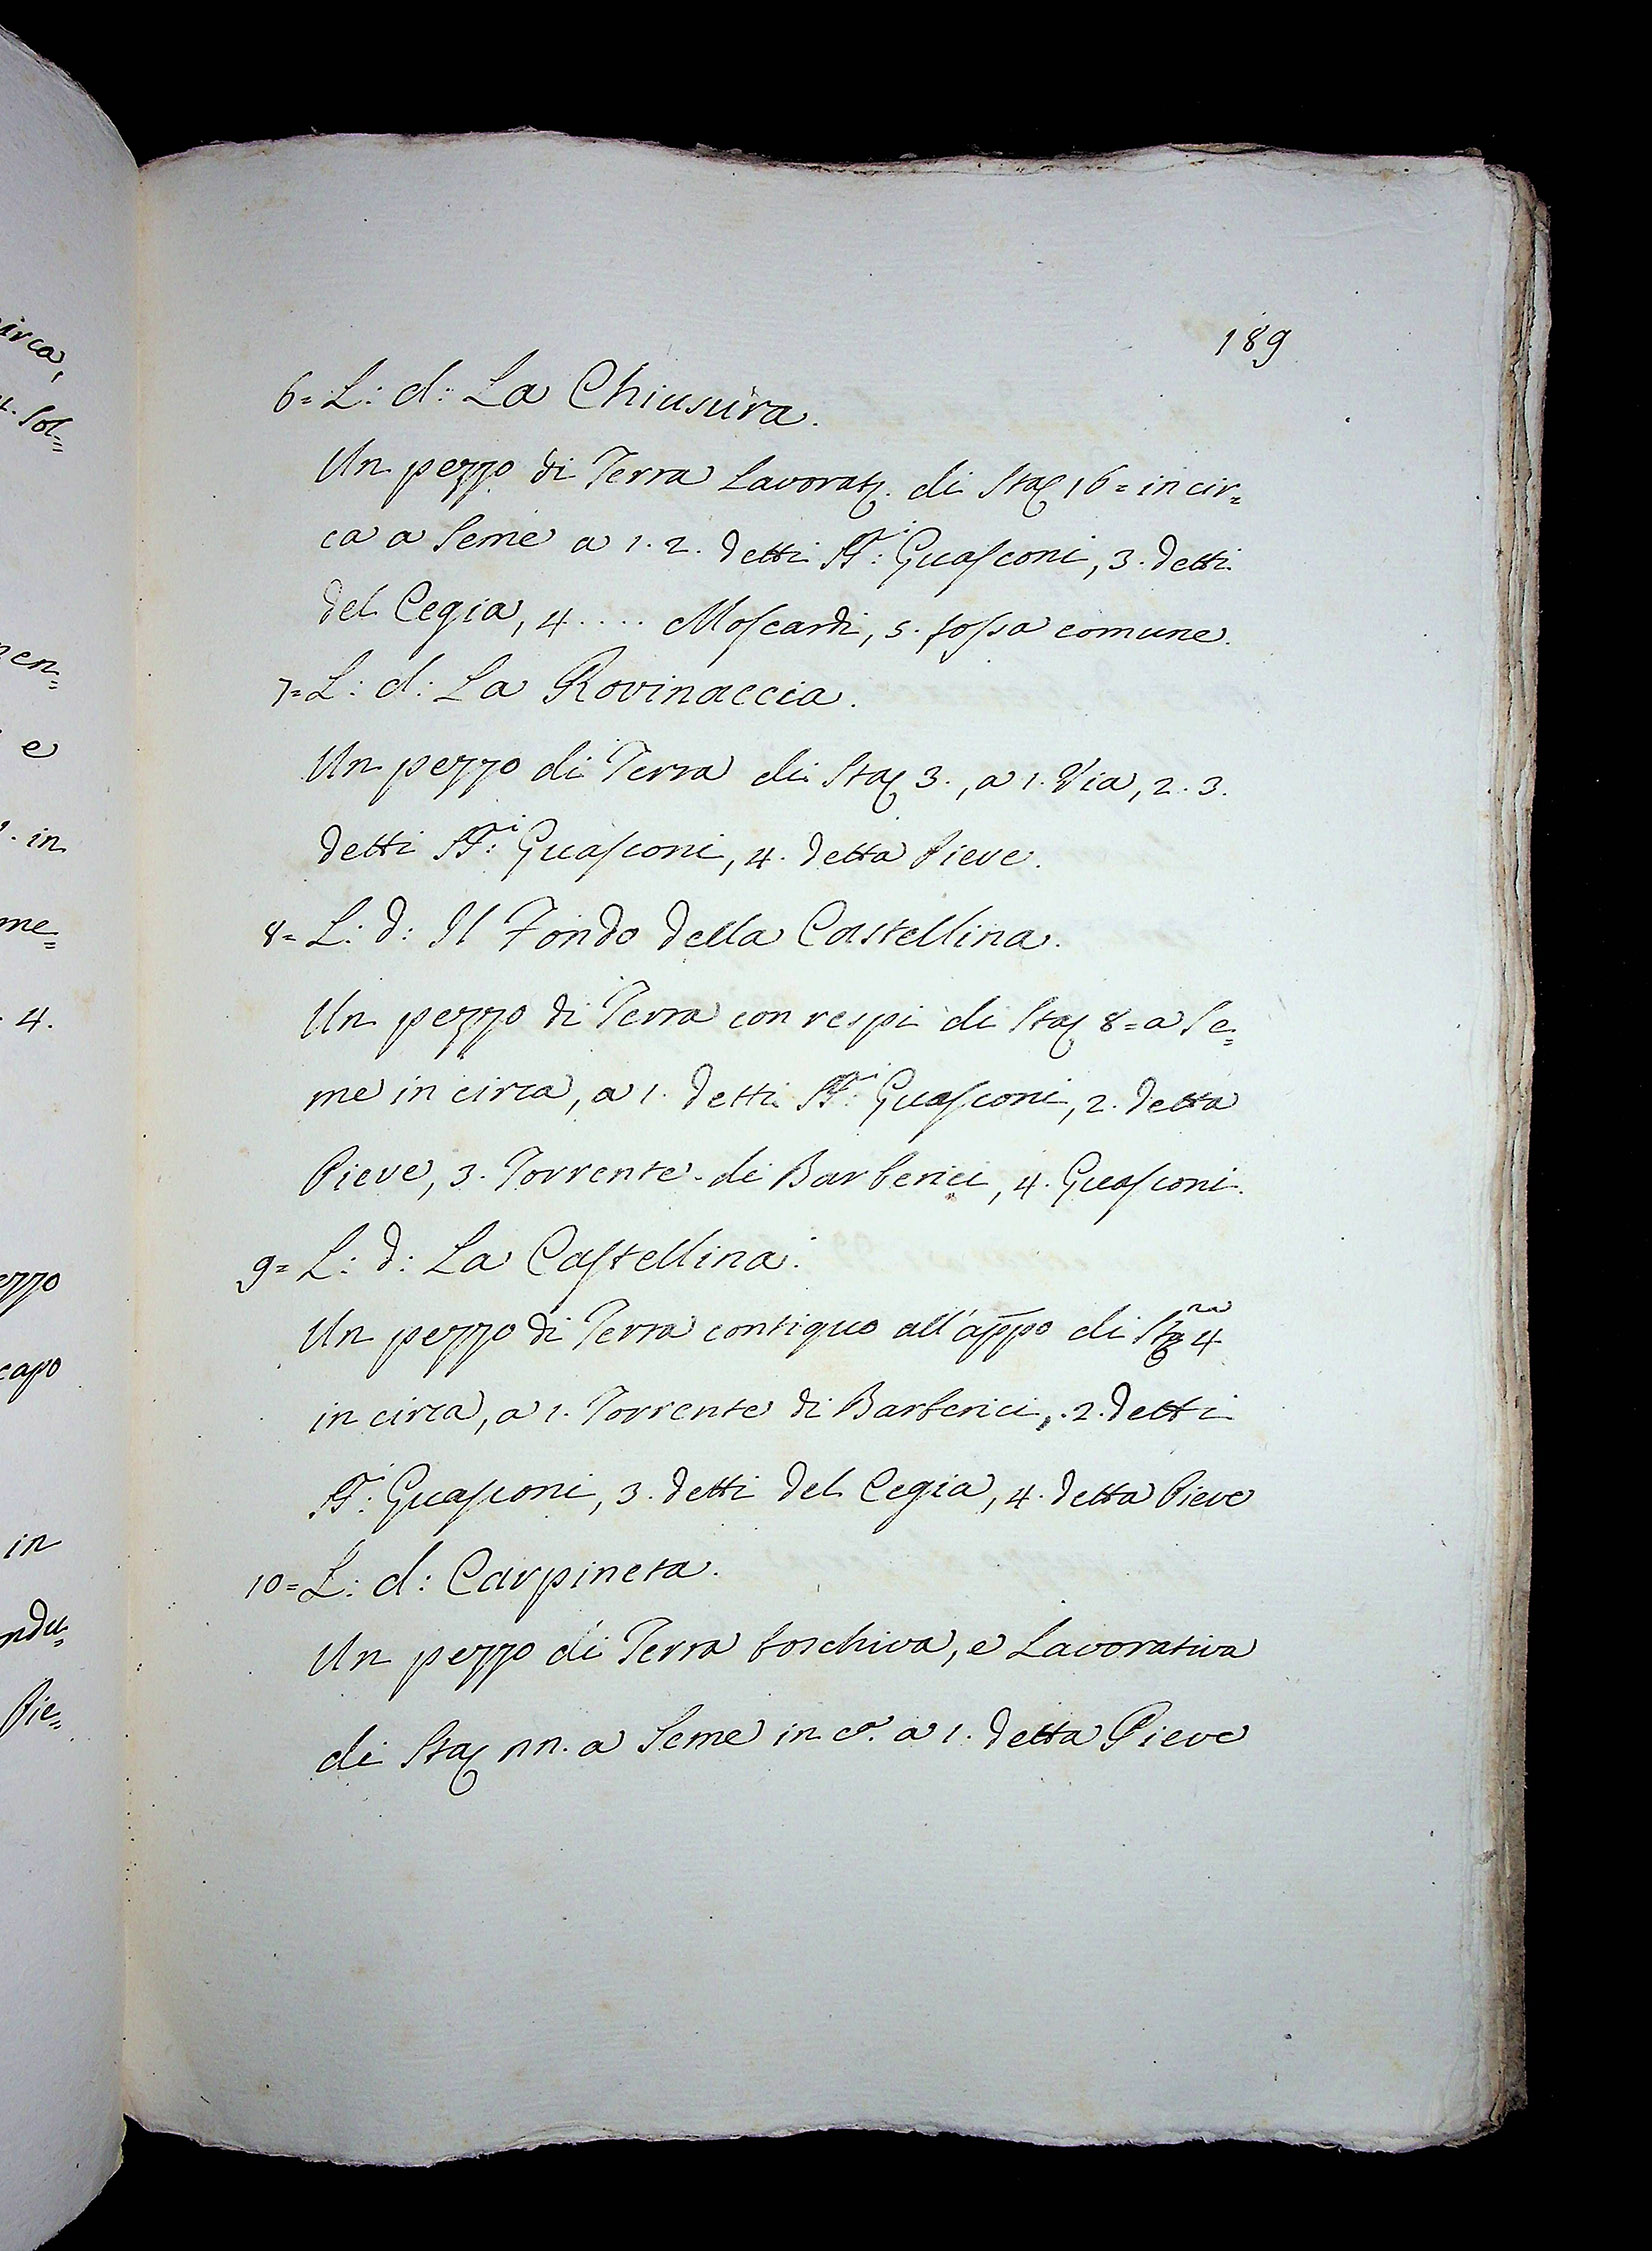 irca,
4. Sol=
men=
e
in
me=
4.
ezzo
capo
in
ndu=
Pie=
189
6= L: d: La Chiusura.
Un pezzo di Terra Lavorat. di Sta 16= in cir=
ca a Seme a 1. 2. detti SS:i Guasconi, 3. detti
del Cegia, 4 .... Moscardi, 5. fossa comune.
7= L: d: La Rovinaccia.
Un pezzo di Terra di Sta 3., a 1. Via, 2. 3.
detti SS:i Guasconi, 4. detta Pieve.
8= L: d: Il Fondo della Castellina.
Un pezzo di Terra con respi di Sta 8= a Se=
me in circa, a 1. detti SS:i Guasconi, 2. detta
Pieve, 3. Torrente di Barberici, 4. Guasconi.
9= L: d: La Castellina.
Un pezzo di Terra contiguo all'appo di 4
in circa, a 1. Torrente di Barberici, 2. detti
SS:i Guasconi, 3. detti del Cegia, 4. detta Pieve
10= L: d: Carpineta.
Un pezzo di Terra boschiva, e Lavorativa
di Sta nn. a Seme in ca. a 1. detta Pieve